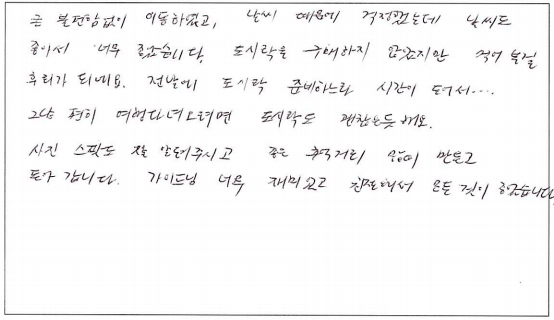 큰 불편함없이 이동하였고, 날씨 때문에 걱정했는데 날씨도
좋아서 너무 좋았습니다. 도시락을 구매하지 않았지만 적어
후회가 되네요. 전날에 도시락 준비하느라 시간이 들어서....
그냥 편히 여행다녀오려면 도시락도 괜찮은듯 해요.
사진 스팟도 잘 알려주시고 좋은 추억거리 많이 만들고
돌아 갑니다. 가이드님 너무 재미있고 친절해서 모든 것이 좋았습니다